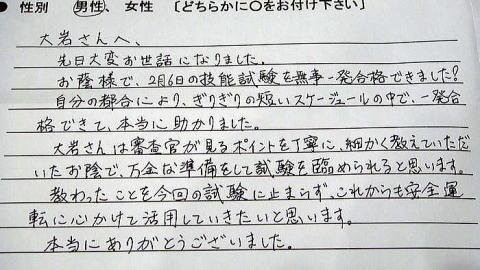 ● 性別 男性、女性 〔どちらかに○をお付け下さい〕
大岩さんへ、
先日大変お世話になりました。
お陰様で、2月6日の技能試験を無事一発合格できました?
自分の都合により、ぎりぎりの短いスケージュールの中で、一発合
格できて、本当に助かりました。
大岩さんは審査官が見るポイントを丁寧に、細かく教えていただ
いたお陰で、万全な準備をして試験を臨められると思います。
教わったことを今回の試験に止まらず、これからも安全運
転に心かけて活用していきたいと思います。
本当にありがとうございました。